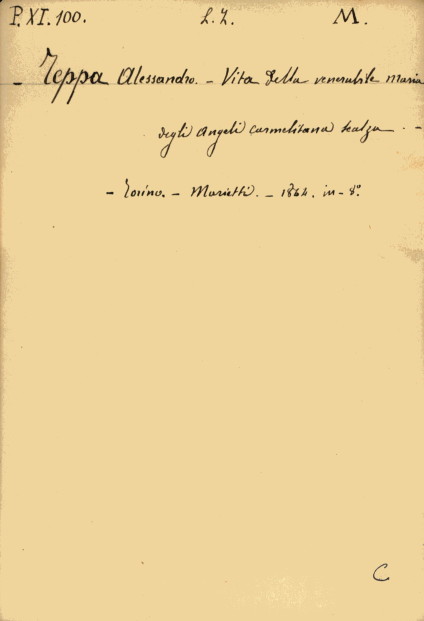 P. XI. 100. L. Z. M.
- Teppa Alessandro. - Vita della venerabile Maria
degli Angeli carmelitana scalza. -
- Torino. - Marietti. - 1864. in-8°.
C